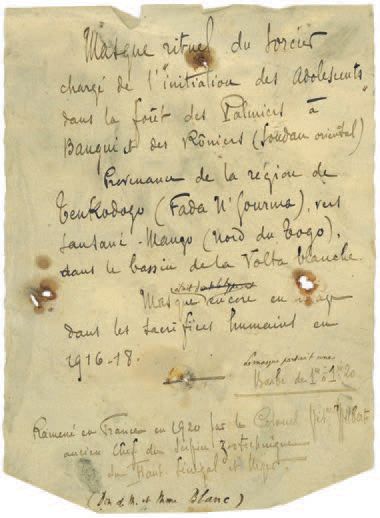 Masque rituel du Sorcier
chargé de l'"initiation des Adolescents"
dans la forêt des Palmiers à
Banqui et des Rôniers (Soudan oriental)
Provenance de la région de
Tenkodogo (Fada N'Gourma), vers
Sansané-Mango (Nord du Togo),
dans le bassin de la Volta blanche.
Masque était encore en usage
dans les sacrifices humains en
1916-18.
Le masque portait une
Barbe de 1m à 1m20
Ramené en France en 1920 par le Colonel
ancien chef du Service zootechnique
du Haut Sénégal et Niger.
(Don de M. et Mme Blanc)